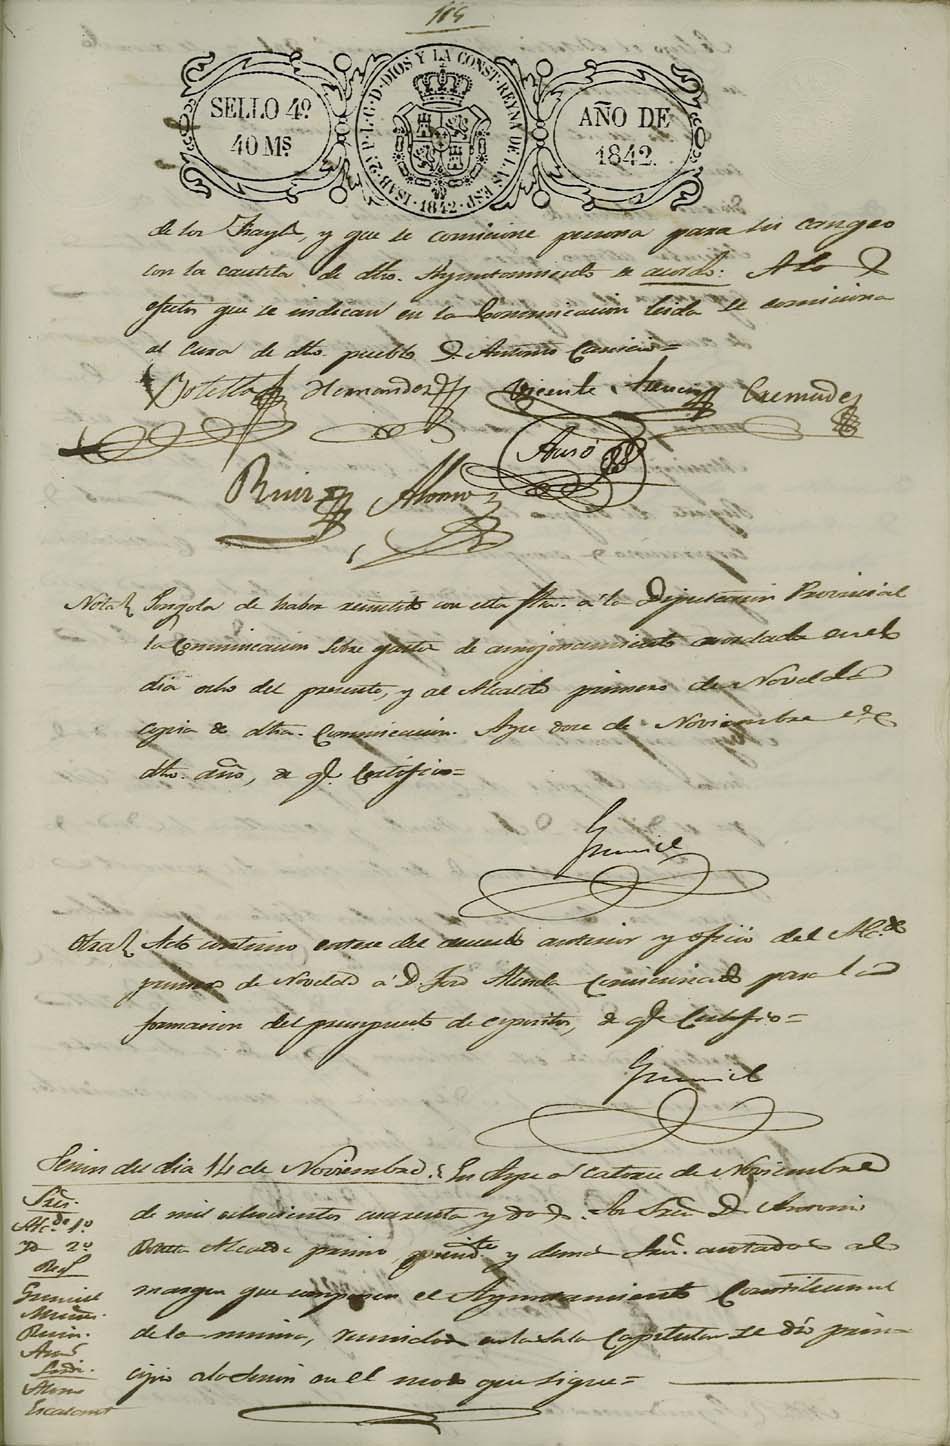 115
SELLO 4º
40 Ms
ISAB. 2ª P. L. G. D. DIOS Y LA CONST. REYNA DE LAS ESP. 1842
AÑO DE
1842.
de los Frayls, y que se comicione persona para su congeo
con la cautela de dho. Ayuntamiento se acordó: A lo
efectos que se indican en la Comunicacion leida se comiciona
al Cura de dho. pueblo D. Antonio =
Botella Hernandez Vicente Cremades
Auró
Ruiz Alonso
Nota de haber remitido con esta fha. a la Diputacion Provincial
la Comunicacion sobre gastos de amojonamiento acordada en el
dia ocho del presente, y al Alcalde primero de Novelda
copia de dha. Comunicacion. Aspe doce de Noviembre de
dho. año, de q. Certifico=
Otra Acto continuo entere del acuerdo anterior y oficio del Alc.de
primero de Novelda á D. José Alenda Comicionado para la
formacion del presupuesto de espositos, de que Certifico=
Sesion del dia 14 de Noviembre. En Aspe a catorce de Noviembre
de mil ochocientos cuarenta y dos. Los Sres D. Antonio
Botella Alcalde primo presidte y demas Sres. anotados al
margen que componen el Ayuntamiento Constitucional
de la misma, reunidos en la Sala Capitular se dió prin
cipio a la Sesion en el modo que sigue=
Sres.
Alc.de 1º
Id. 2º
Regs
Ruiz.
Auró
Sindi.
Alonso
Escalant